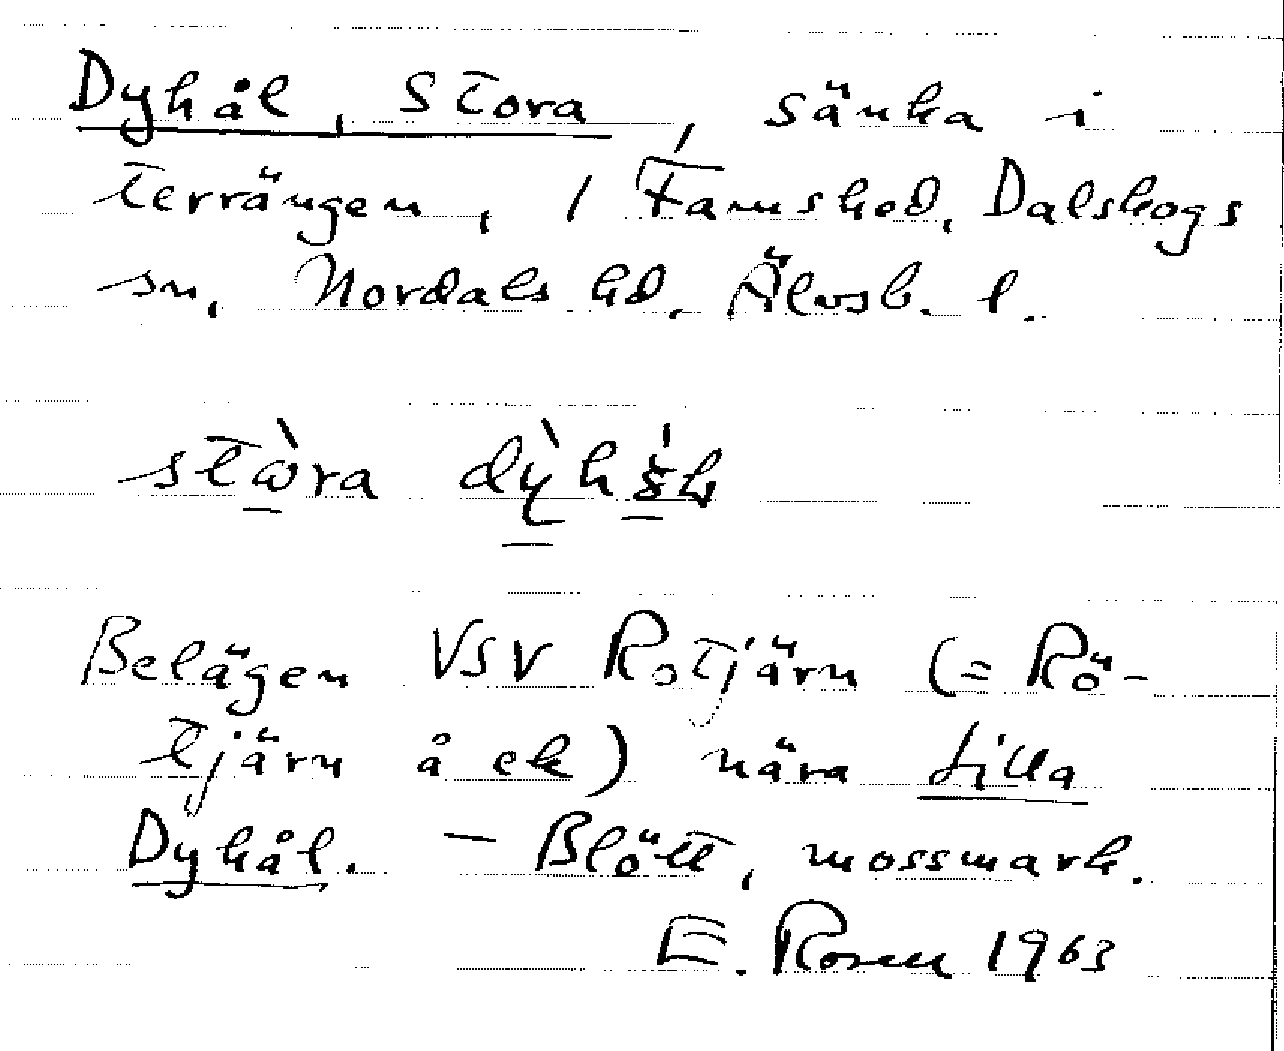 Dyhål, Stora, sänka i
terrängen, 1 Tamshod, Dalskogs
sn, Nordals hd. Älvsb. l.
stòra
Belägen VSV Rotjärn (= Rö-
tjärn å ek) nära Lilla
Dyhål. – Blött, mossmark.
E. Rosen 1963